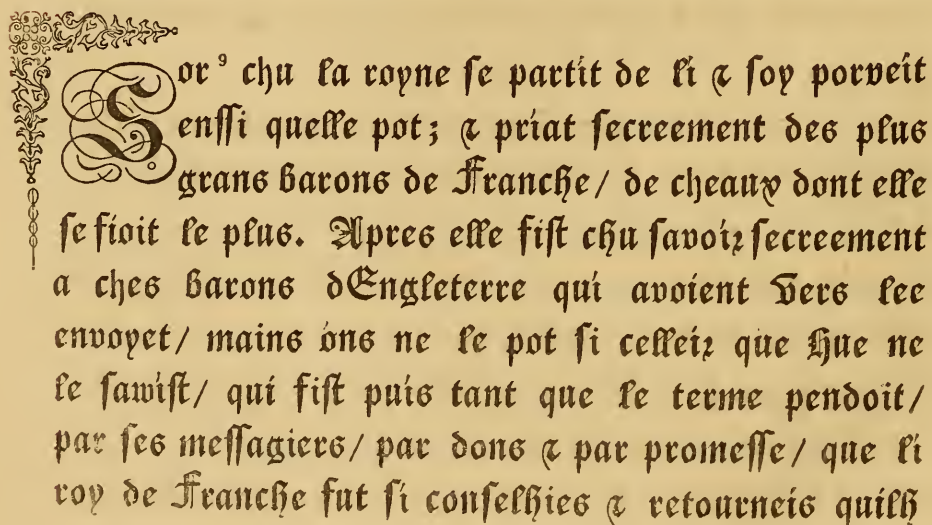 Sor⁹ chu la royne se partit de li & soy porveit
enssi quelle pot; & priat secreement des plus
grans barons de Franche/ de cheaux dont elle
se fioit le plus. Apres elle fist chu savoir secreement
a ches barons dEngleterre qui avoient vers lee
envoyet/ mains ons ne le pot si celleir que Hue ne
le sawist/ qui fist puis tant que le terme pendoit/
par ses messagiers/ par dons & par promesse/ que li
roy de Franche fut si conselhies & retourneis quilh